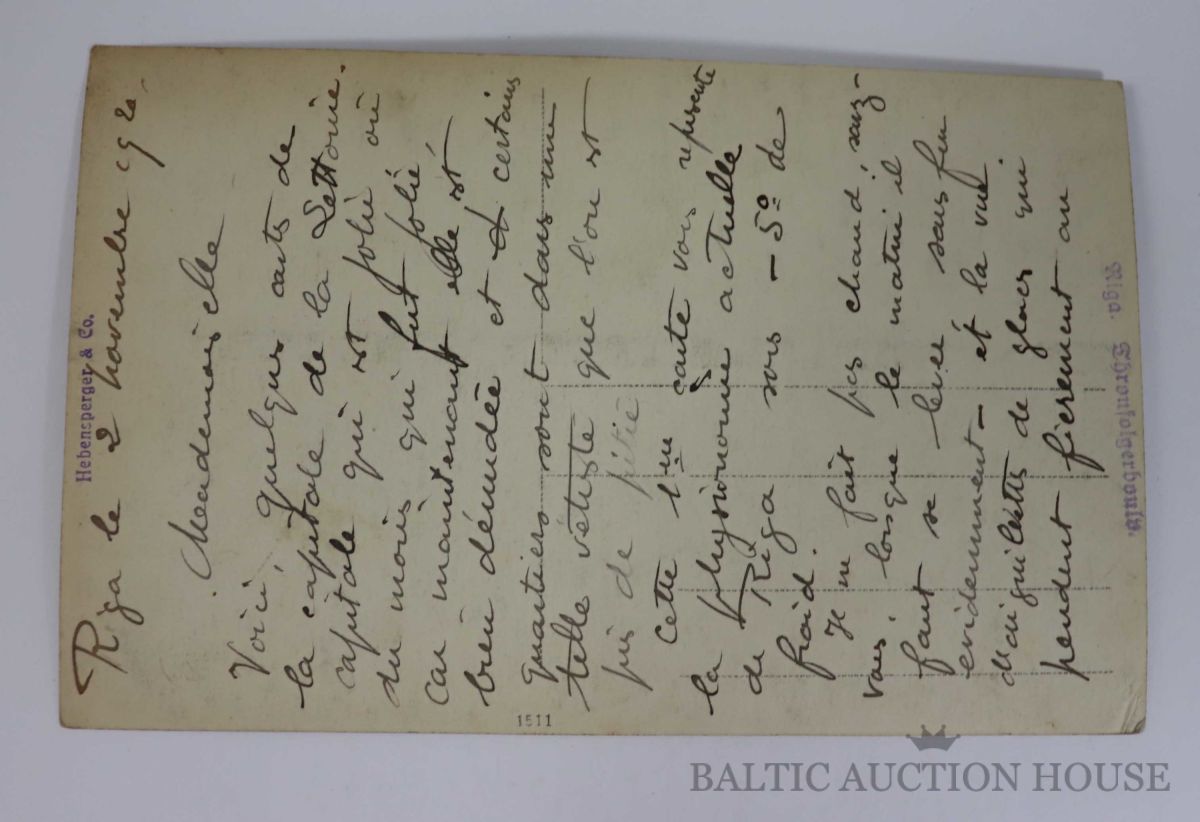 Riga le 2 novembre 1920.
Mademoiselle
Voici, quelques carts de
la capitale de la Lettonie.
capitale qui est jolie où
du mois qui fut jolie,
car maintenant elle est
bien dénudée et certains
quartiers sont dans une
telle vétusté que l'on est
pris de pitié
Cette 1re carte vous represente
la physionomie actuelle
de Riga sous - 5° de
froid.
Il ne fait pas chaud, savez-
vous, losque le matin il
faut se lever sans feu
evidemment - et la vue
d'aiguilettes de glaces qui
pendent fièrement au
Hebensperger & Co.
Riga. Thronfolgerboulv.
1511
BALTIC AUCTION HOUSE